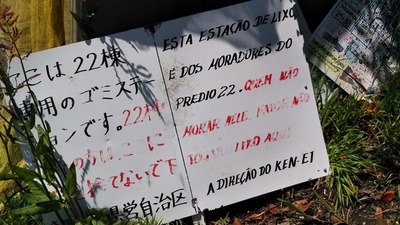 は 22棟
用のゴミステ
ョンです。22棟
はここに
てないで下
営自治区
ESTA ESTAÇÃO DE LIXO
E DOS MORADORES DO
PREDIO 22. QUEM NÃO
MORAR NELE, FAVOR NÃO
JOGAR LIXO AQUI.
A DIREÇÃO DO KEN-EI